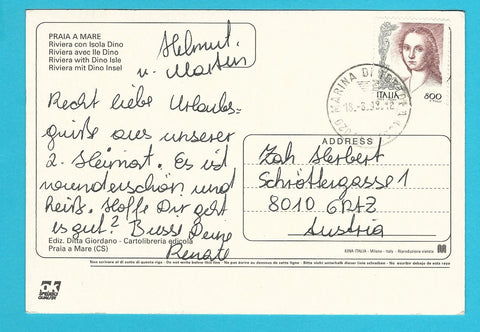 PRAIA A MARE
Riviera con Isola Dino
Riviera avec Ile Dino
Riviera with Dino Isle
Riviera mit Dino Insel
Helmut.
u. Martin
Recht liebe Urlaubs-
grüße aus unserer
2. Heimat. Es ist
wunderschön und
heiß. Hoffe Dir geht
es gut? Bussi Deine
Renate
Ediz. Ditta Giordano - Cartolibreria edicola
Praia a Mare (CS)
ITALIA
800
MARINA DI
ADDRESS
Zach Herbert
Schröttergasse 1
8010 GRAZ
Austria
Milano - Italy - Riproduzione vietata
Non scrivere al di sotto di questa riga - Do not write below this line - Ne pas écrire au dessous de cette ligne - Bitte nicht unterhalb dieser Linie schreiben - No escribir debajo de esta raya